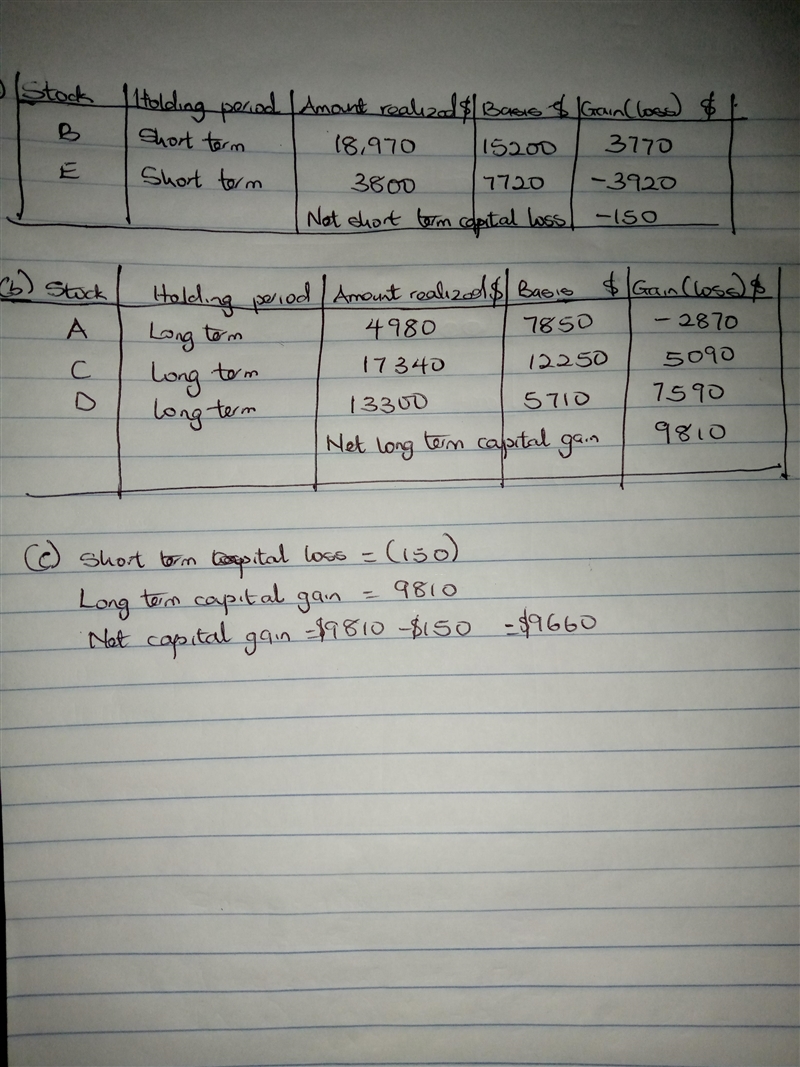 ) Stock Holding period Amount realized $ Basis $ Gain (loss) $
B Short term 18,970 15200 3770
E Short term 3800 7720 -3920
Net short term capital loss -150
(b) Stock Holding period Amount realized $ Basis $ Gain (loss) $
A Long term 4980 7850 -2870
C Long term 17340 12250 5090
D Long term 13300 5710 7590
Net long term capital gain 9810
(c) Short term capital loss = (150)
Long term capital gain = 9810
Net capital gain = $9810 - $150 = $9660